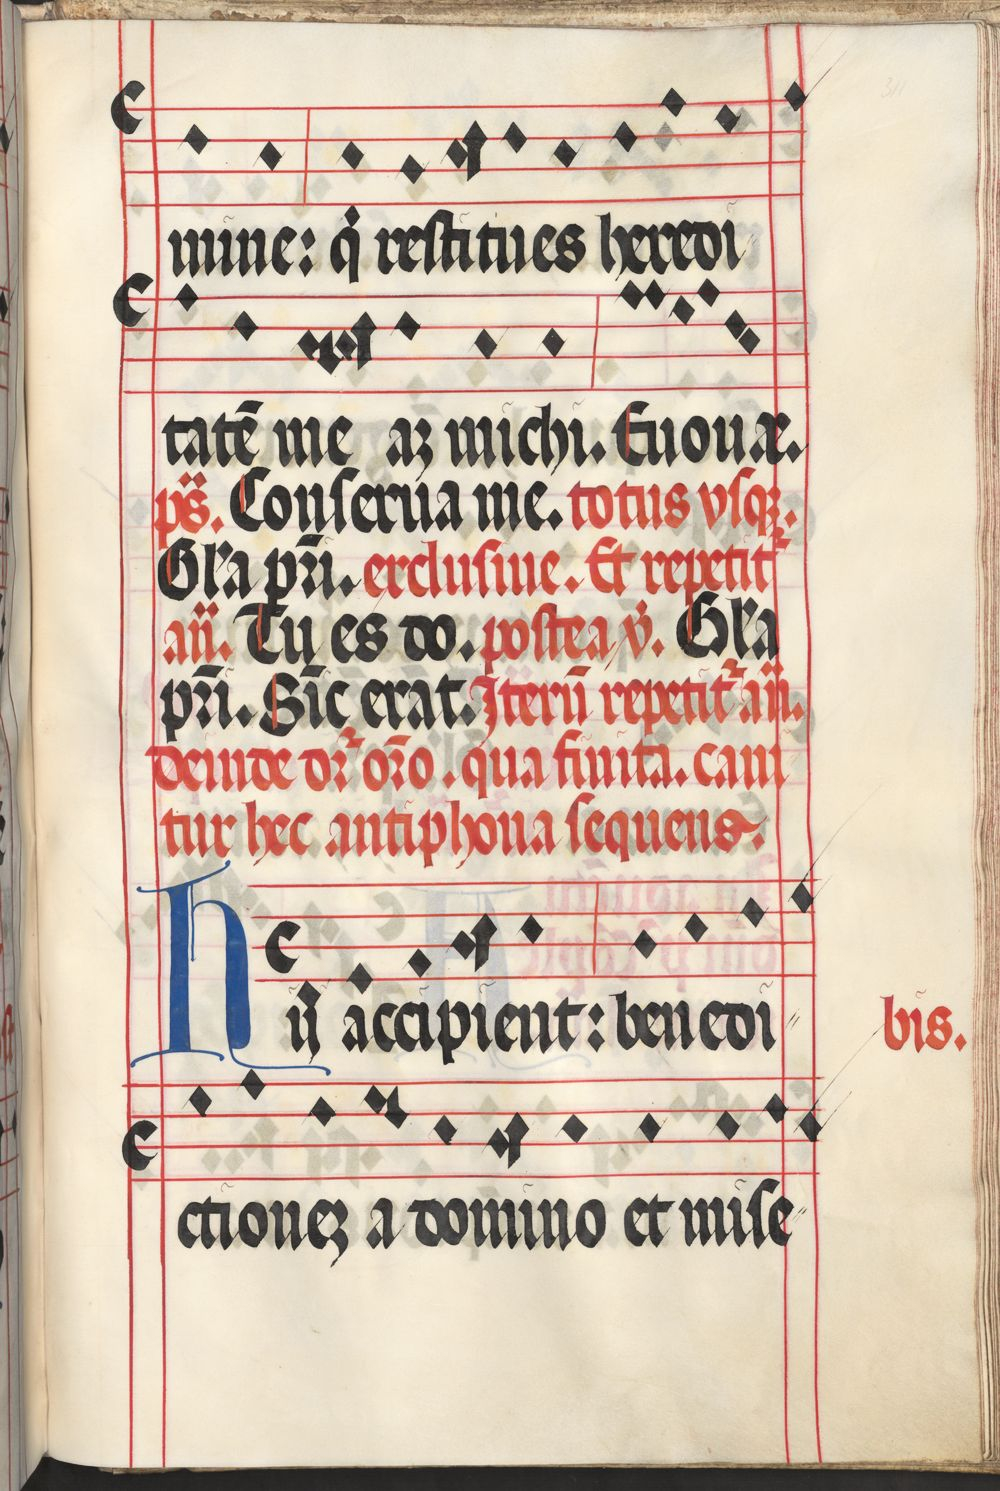 mine: q̃ restitues heredi
tatē me aꝫ michi. Euouæ.
ps̃. Conserua me. totus vsqꝫ.
Gl'a pr̃i. exclusiue. Et repetit᷑
añ. Tu es do. postea ỹ. Gl'a
pr̃i. Sic̃ erat. Iterũ repetit᷑ añ.
Deinde dr᷑ or̃o. qua finita. cani
tur hec antiphona sequens.
Hij accipient: benedi〃 bis.
ctioneꝫ a domino et mise〃